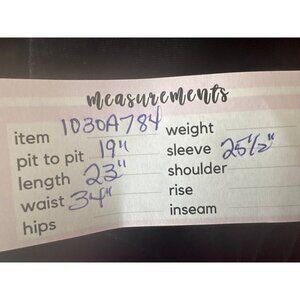 measurements
item 1D30A784
pit to pit 19"
length 23"
waist 34"
hips
weight
sleeve 25½"
shoulder
rise
inseam